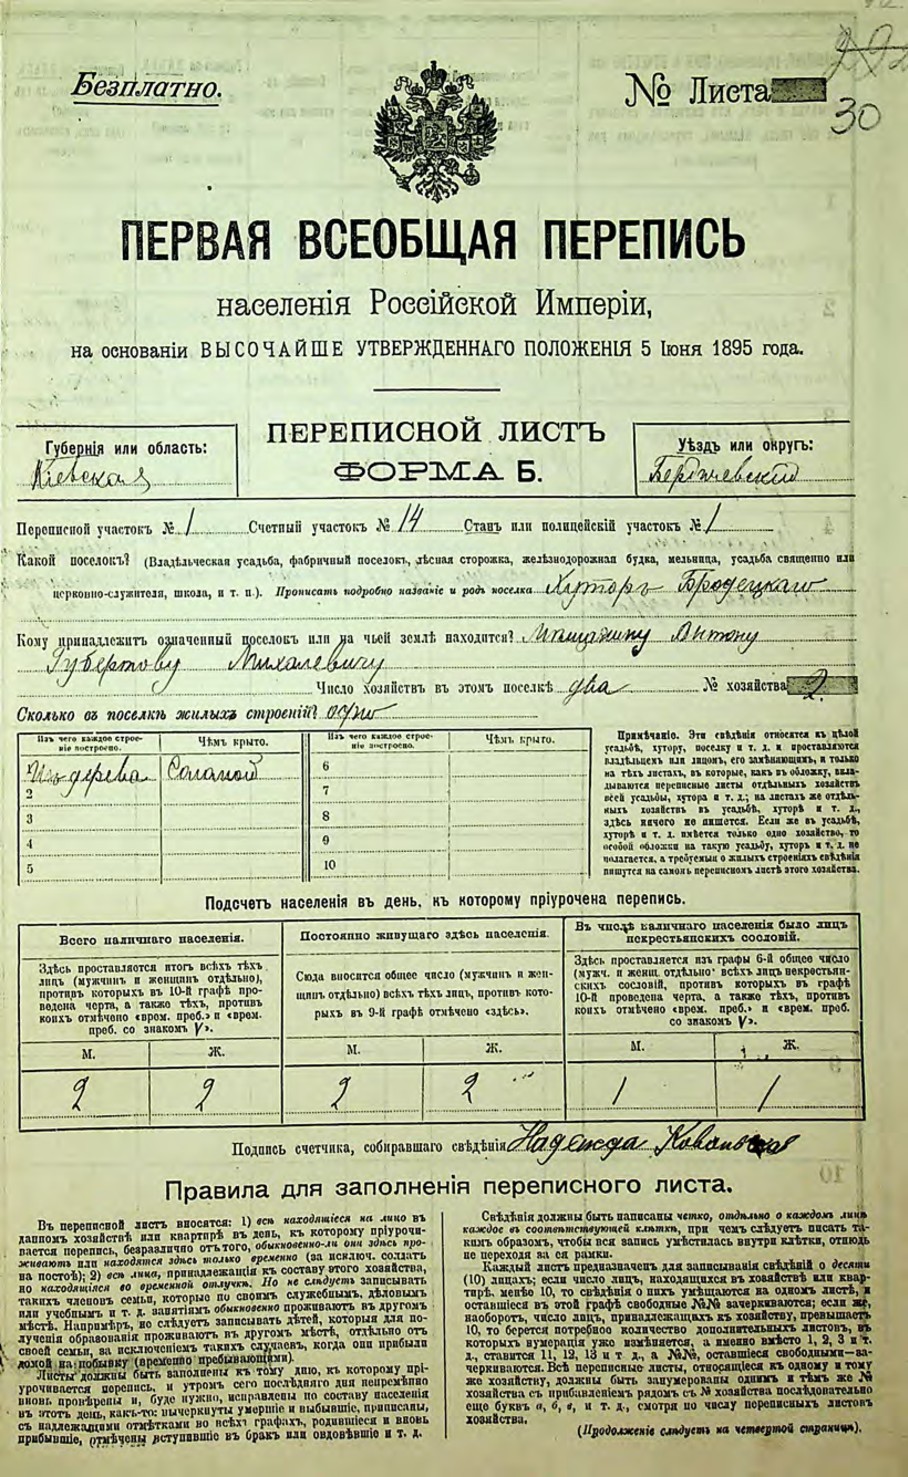 Безплатно.
№ Листа
30
ПЕРВАЯ ВСЕОБЩАЯ ПЕРЕПИСЬ
населенія Россійской Имперіи,
на основаніи ВЫСОЧАЙШЕ УТВЕРЖДЕННАГО ПОЛОЖЕНІЯ 5 Іюня 1895 года.
ПЕРЕПИСНОЙ ЛИСТЪ
ФОРМА Б.
Губернія или область:
Кіевская
Уѣздъ или округъ:
Бердичевскій
Переписной участокъ № 1 Счетный участокъ № 14 Станъ или полицейскій участокъ № 1
Какой поселокъ? (Владѣльческая усадьба, фабричный поселокъ, лѣсная сторожка, желѣзнодорожная будка, мельница, усадьба священно или
церковно-служителя, школа, и т. п.). Прописать подробно названіе и родъ поселка Хуторъ Бродецкаго
Кому принадлежитъ означенный поселокъ или на чьей землѣ находится? Мѣщанину Антону
Губертову Михалевичу
Число хозяйствъ въ этомъ поселкѣ два № хозяйства 2.
Сколько въ поселкѣ жилыхъ строеній? одно
Изъ чего каждое строе-
ніе построено.
Чѣмъ крыто.
Изъ чего каждое строе-
ніе построено.
Чѣмъ крыто.
Изъ дерева Соломой 6
2 7
3 8
4 9
5 10
Примѣчаніе. Эти свѣдѣнія относятся къ цѣлой
усадьбѣ, хутору, поселку и т. д. и проставляются
владѣльцемъ или лицомъ, его замѣняющимъ, и только
на тѣхъ листахъ, въ которые, какъ въ обложку, вкла-
дываются переписные листы отдѣльныхъ хозяйствъ
всей усадьбы, хутора и т. д.; на листахъ же отдѣль-
ныхъ хозяйствъ въ усадьбѣ, хуторѣ и т. д.,
здѣсь ничего не пишется. Если же въ усадьбѣ,
хуторѣ и т. д. имѣется только одно хозяйство, то
особой обложки на такую усадьбу, хуторъ и т. д. не
полагается, а требуемыя о жилыхъ строеніяхъ свѣдѣнія
пишутся на самомъ переписномъ листѣ этого хозяйства.
Подсчетъ населенія въ день, къ которому пріурочена перепись.
Всего наличнаго населенія.
Здѣсь проставляется итогъ всѣхъ тѣхъ
лицъ (мужчинъ и женщинъ отдѣльно),
противъ которыхъ въ 10-й графѣ про-
ведена черта, а также тѣхъ, противъ
коихъ отмѣчено «врем. преб.» и «врем.
преб. со знакомъ V».
М. Ж.
2 2
Постоянно живущаго здѣсь населенія.
Сюда вносится общее число (мужчинъ и жен-
щинъ отдѣльно) всѣхъ тѣхъ лицъ, противъ кото-
рыхъ въ 9-й графѣ отмѣчено «здѣсь».
М. Ж.
2 2
Въ числѣ наличнаго населенія было лицъ
некрестьянскихъ сословій.
Здѣсь проставляется изъ графы 6-й общее число
(мужч. и женщ. отдѣльно) всѣхъ лицъ некрестьян-
скихъ сословій, противъ которыхъ въ графѣ
10-й проведена черта, а также тѣхъ, противъ
коихъ отмѣчено «врем. преб.» и «врем. преб.
со знакомъ V».
М. Ж.
1 1
Подпись счетчика, собиравшаго свѣдѣнія Надежда
Правила для заполненія переписного листа.
Въ переписной листъ вносятся: 1) всѣ находящіеся на лицо въ
данномъ хозяйствѣ или квартирѣ въ день, къ которому пріурочи-
вается перепись, безразлично отъ того, обыкновенно-ли они здѣсь про-
живаютъ или находятся здѣсь только временно (за исключ. солдатъ
на постоѣ); 2) всѣ лица, принадлежащія къ составу этого хозяйства,
но находящіяся во временной отлучкѣ. Но не слѣдуетъ записывать
такихъ членовъ семьи, которые по своимъ служебнымъ, дѣловымъ
или учебнымъ и т. д. занятіямъ обыкновенно проживаютъ въ другомъ
мѣстѣ. Напримѣръ, не слѣдуетъ записывать дѣтей, которыя для по-
лученія образованія проживаютъ въ другомъ мѣстѣ, отдѣльно отъ
своей семьи, за исключеніемъ такихъ случаевъ, когда они прибыли
домой на побывку (временно пребывающими).
Листы должны быть заполнены къ тому дню, къ которому прі-
урочивается перепись, и утромъ сего послѣдняго дня непремѣнно
вновь провѣрены и, буде нужно, исправлены по составу населенія
въ этотъ день, какъ-то: вычеркнуты умершіе и выбывшіе, приписаны,
съ надлежащими отмѣтками во всѣхъ графахъ, родившіеся и вновь
прибывшіе, отмѣчены вступившіе въ бракъ или овдовѣвшіе и т. д.
Свѣдѣнія должны быть написаны четко, отдѣльно о каждомъ лицѣ
каждое въ соотвѣтствующей клѣткѣ, при чемъ слѣдуетъ писать та-
кимъ образомъ, чтобы вся запись умѣстилась внутри клѣтки, отнюдь
не переходя за ея рамки.
Каждый листъ предназначенъ для записыванія свѣдѣній о десяти
(10) лицахъ; если число лицъ, находящихся въ хозяйствѣ или квар-
тирѣ, менѣе 10, то свѣдѣнія о нихъ умѣщаются на одномъ листѣ, и
оставшіеся въ этой графѣ свободные №№ зачеркиваются; если же,
наоборотъ, число лицъ, принадлежащихъ къ хозяйству, превышаетъ
10, то берется потребное количество дополнительныхъ листовъ, въ
которыхъ нумерація уже измѣняется, а именно вмѣсто 1, 2, 3 и т.
д., ставится 11, 12, 13 и т д., а №№, оставшіеся свободными—за-
черкиваются. Всѣ переписные листы, относящіеся къ одному и тому
же хозяйству, должны быть занумерованы однимъ и тѣмъ же №
хозяйства съ прибавленіемъ рядомъ съ № хозяйства послѣдовательно
еще буквъ а, б, в, и т. д., смотря по числу переписныхъ листовъ
хозяйства.
(Продолженіе слѣдуетъ на четвертой страницѣ).